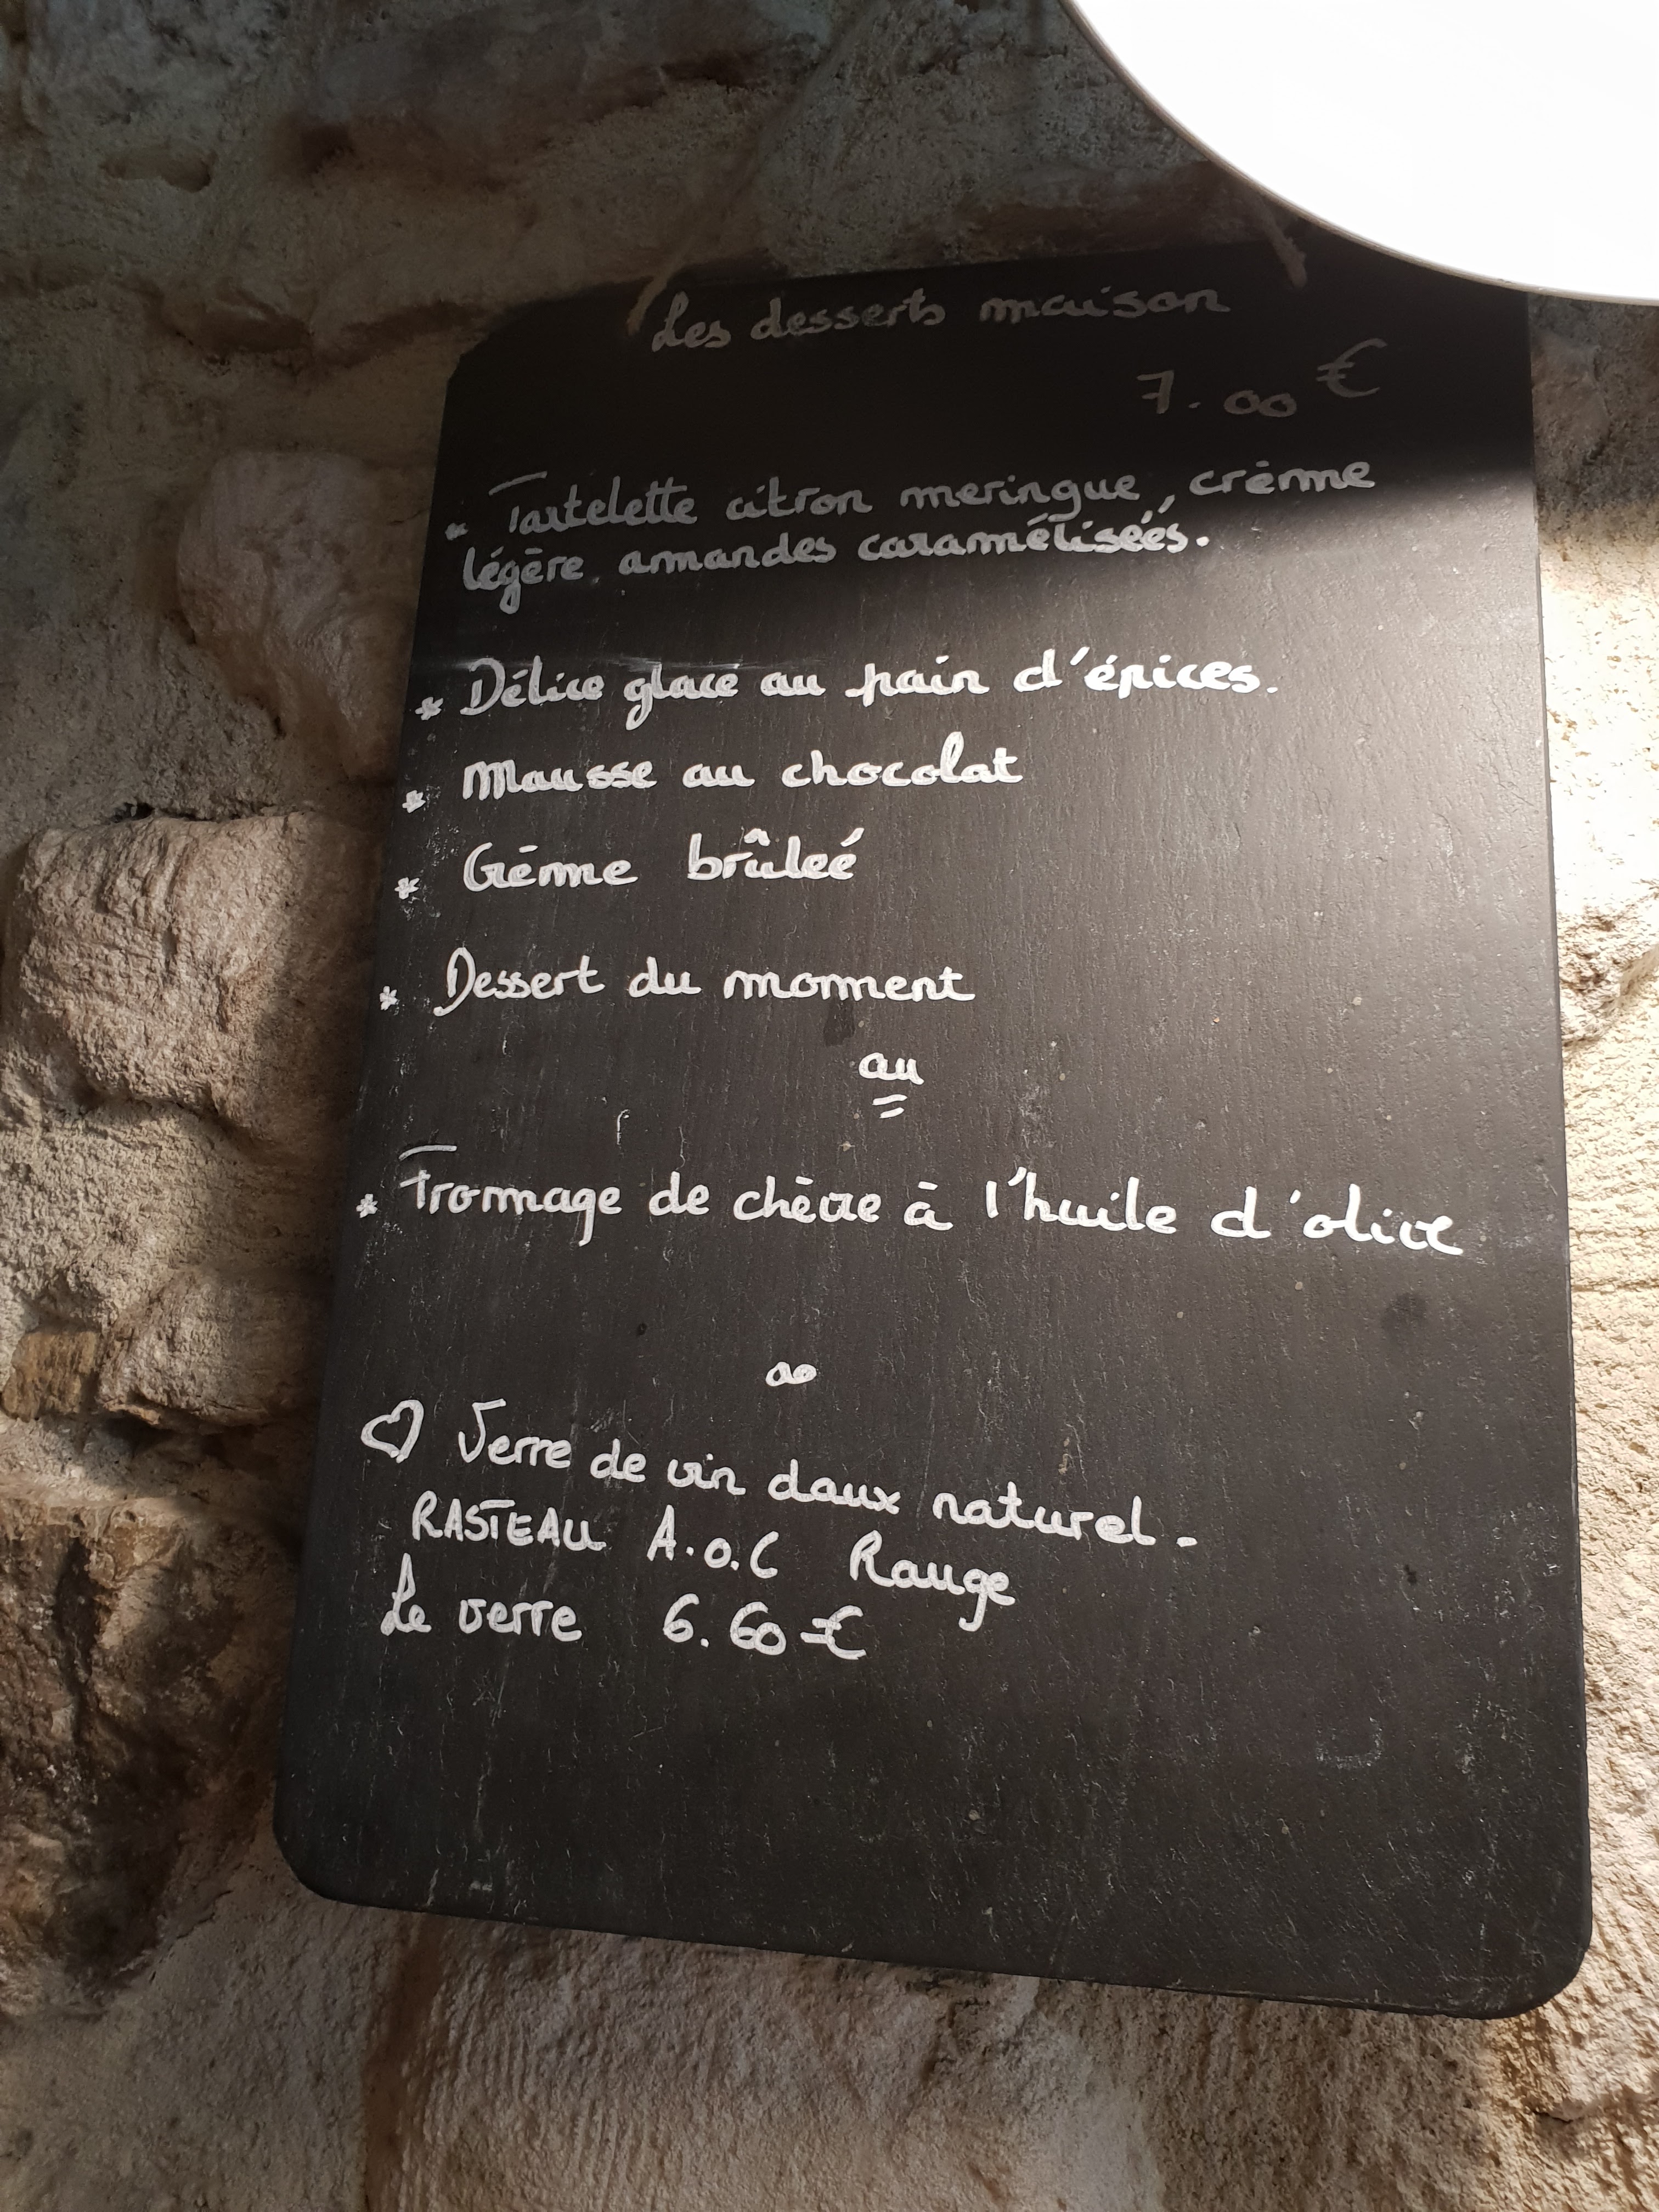 Les desserts maison
7.00 €
* Tartelette citron meringue, crème
légère amandes caramélisées.
* Délice glacé au pain d'épices.
* Mousse au chocolat
* Crème brûlée
* Dessert du moment
ou
* Fromage de chèvre à l'huile d'olive
♡ Verre de vin doux naturel.
RASTEAU A.O.C Rouge
Le verre 6.60 €